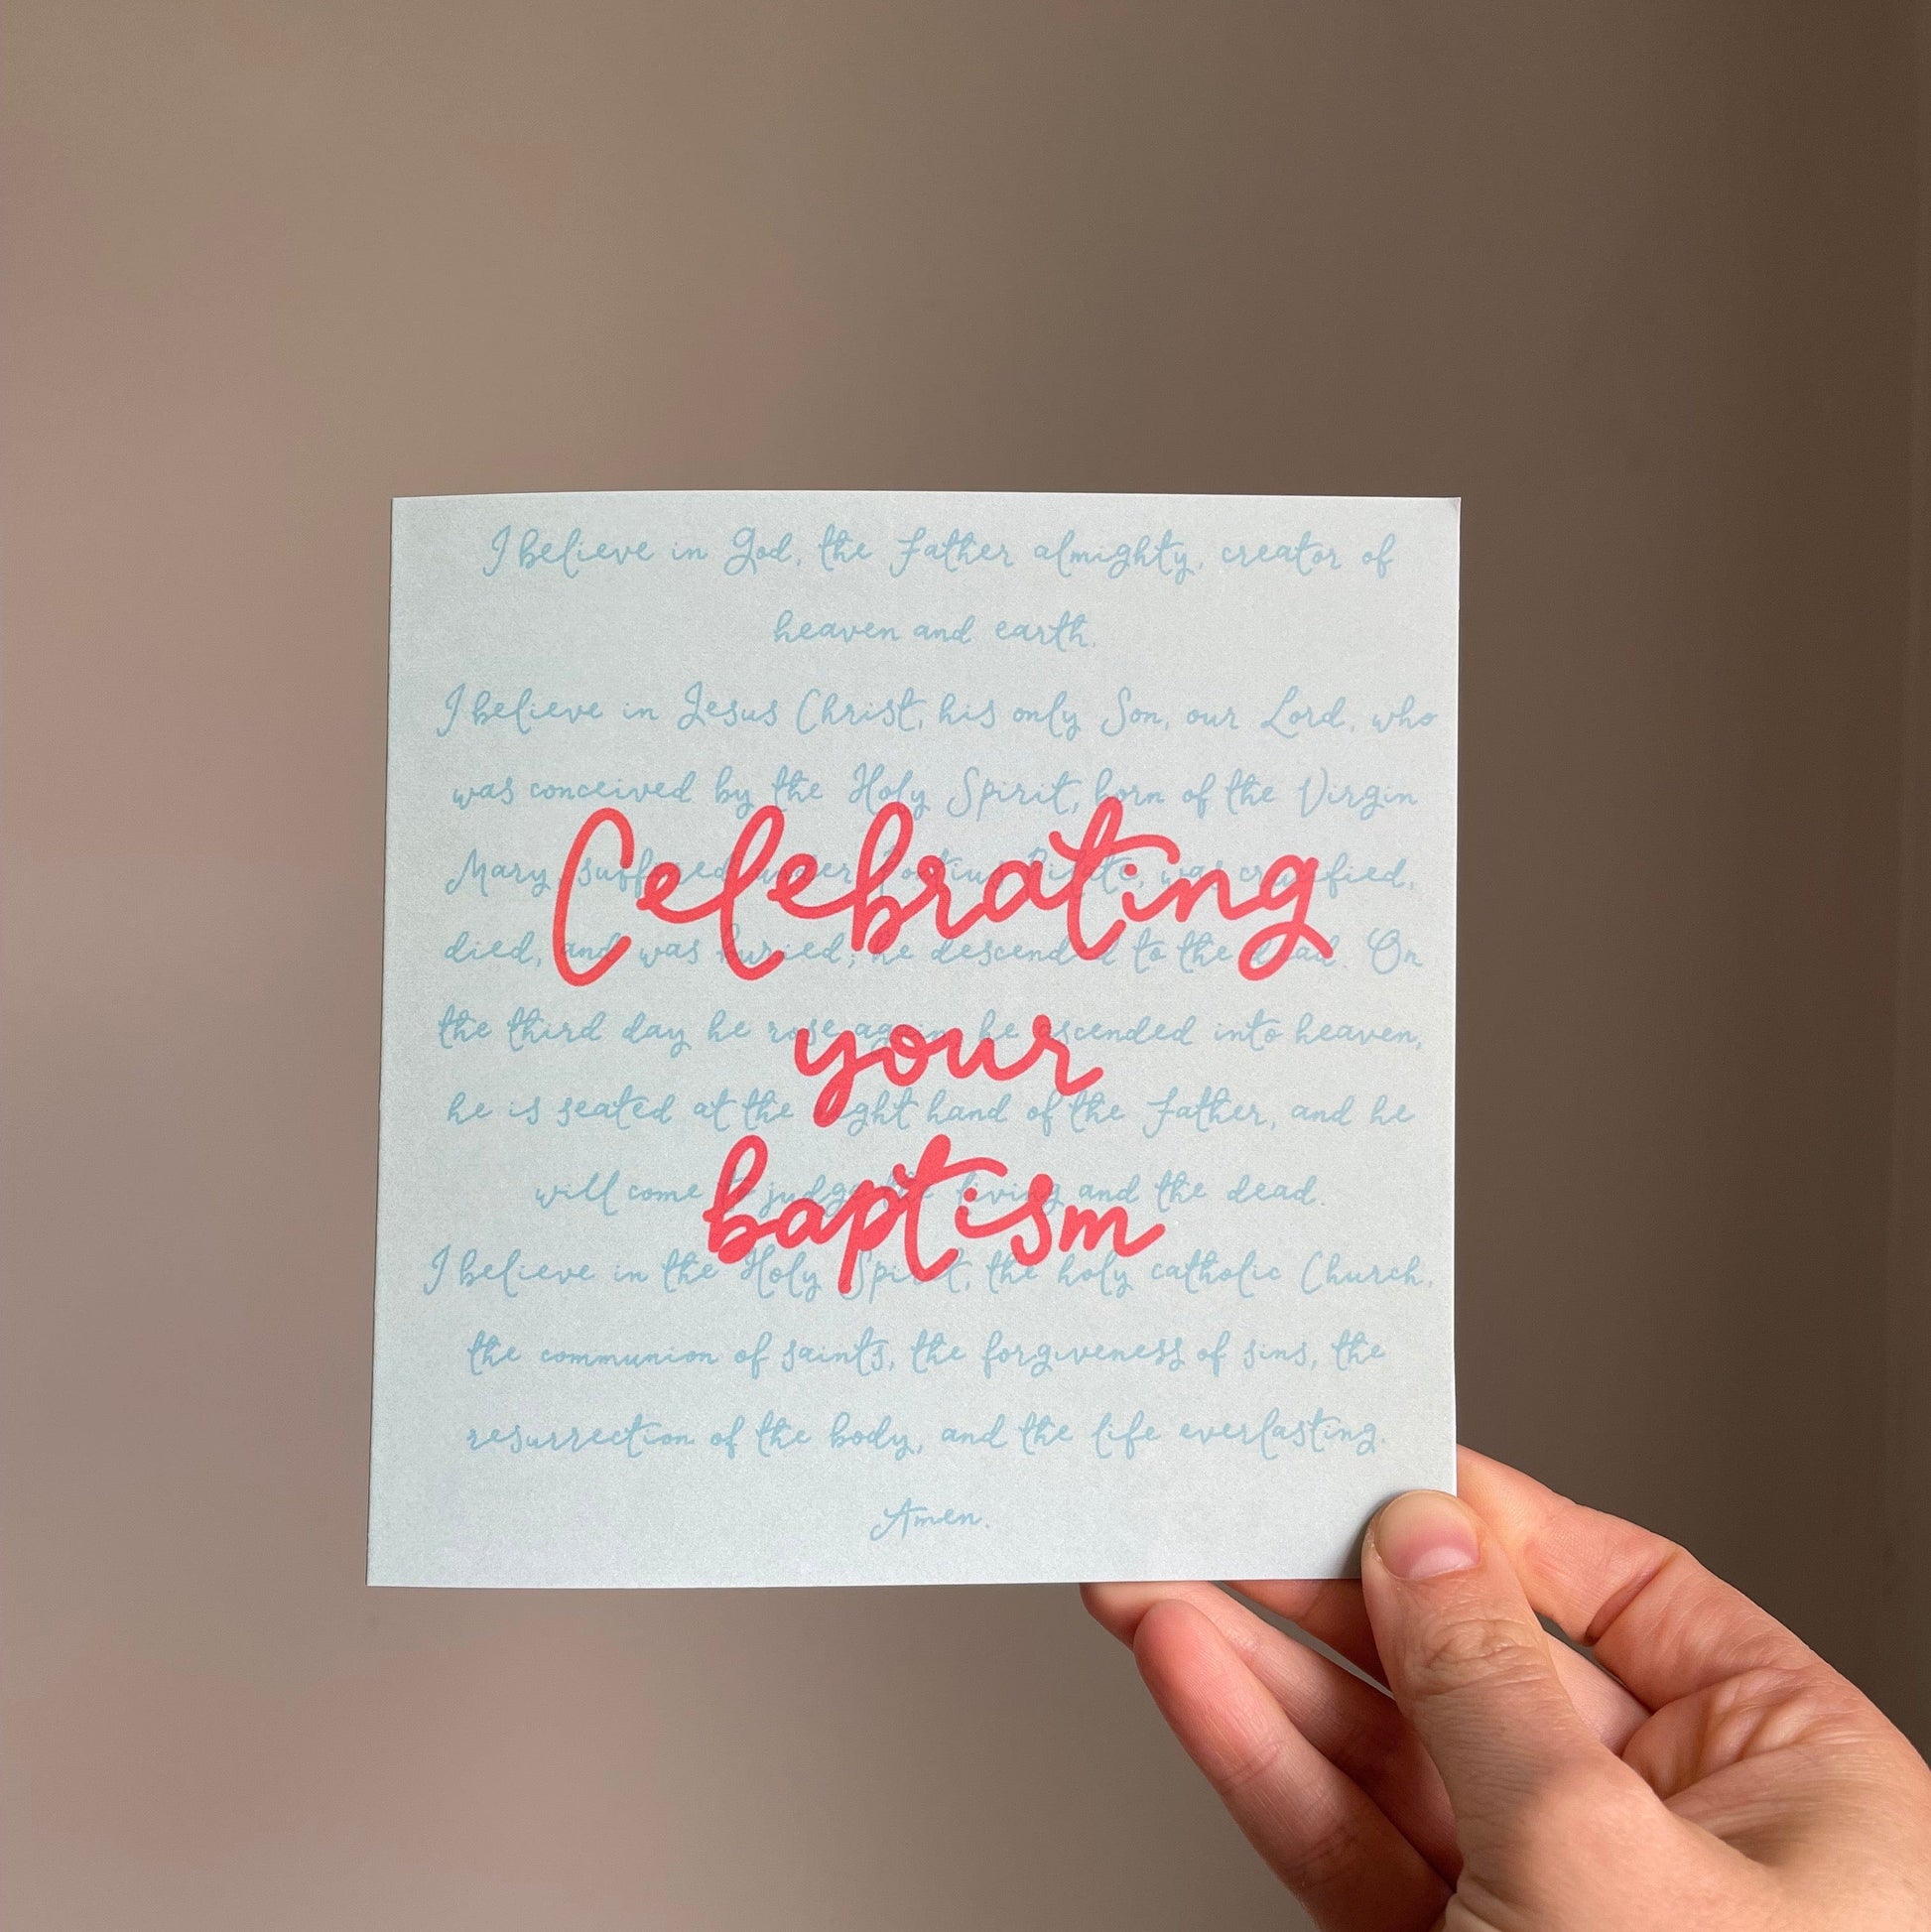 I believe in God, the Father almighty, creator of
heaven and earth.
I believe in Jesus Christ, his only Son, our Lord, who
was conceived by the Holy Spirit, born of the Virgin
Mary, suffered under Pontius Pilate, was crucified,
Celebrating
died, and was buried; he descended to the dead. On
the third day he rose again; he ascended into heaven,
your
he is seated at the right hand of the Father, and he
will come to judge the living and the dead.
baptism
I believe in the Holy Spirit, the holy catholic Church,
the communion of saints, the forgiveness of sins, the
resurrection of the body, and the life everlasting.
Amen.